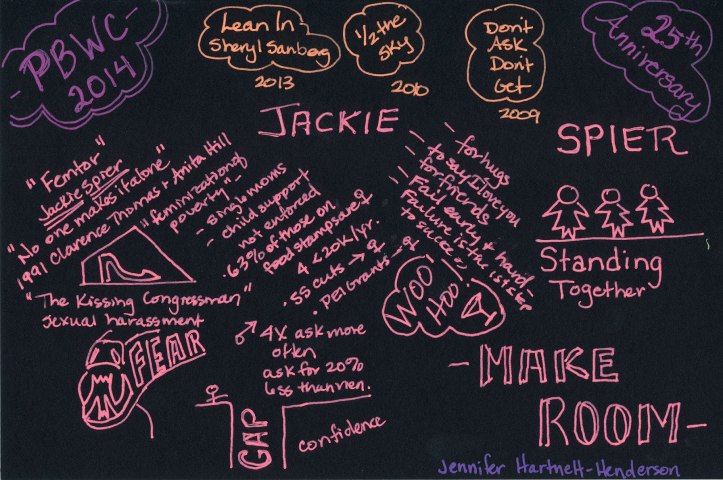 PBWC-
2014
Lean In
Sheryl Sanberg
2013
1/2 the
Sky
2010
Don't
Ask
Don't
Get
2009
25th
Anniversary
JACKIE
SPIER
"Femtor"
Jackie Spier
"No one makes it alone"
1991 Clarence Thomas + Anita Hill
"The Kissing Congressman"
Sexual harassment
"feminization of
poverty"-
- single moms
- child support
not enforced
. 63% of those on
food stamps are ♀
♀ < 20K/yr.
. SS cuts → ♀
. Pell Grants - ♀
- for hugs
- to say I love you
for friends
- Fail early, + hard-
failure is the 1st step
to success
WOO
HOO!
Standing
Together
FEAR
♂ 4X ask more
often
ask for 20%
less than men.
GAP
confidence
- MAKE
ROOM -
Jennifer Hartnett-Henderson